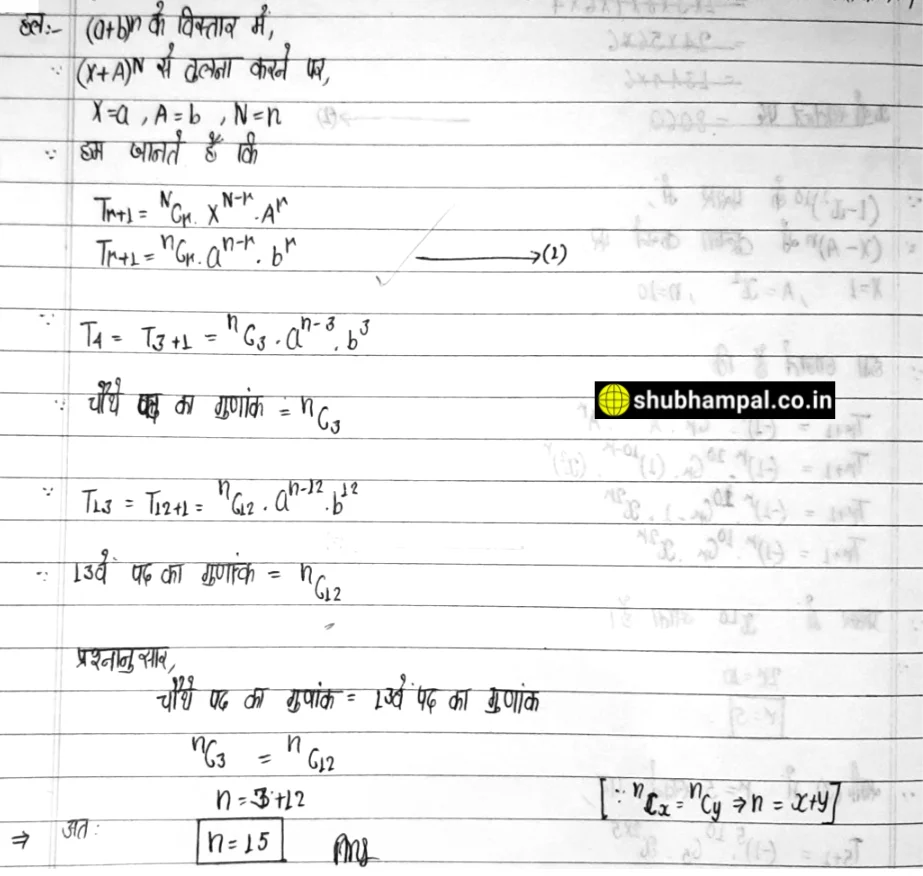 हल:- (a+b)ⁿ के विस्तार में,
∵ (X+A)ᴺ से तुलना करने पर,
X=a , A=b , N=n
∵ हम जानते हैं कि
Tr+1 = ᴺCr. Xᴺ⁻ʳ. Aʳ
Tr+1 = ⁿCr. aⁿ⁻ʳ. bʳ ⟶(1)
∵ T4 = T3+1 = ⁿC3 . aⁿ⁻³ . b³
shubhampal.co.in
∴ चौथे पद का गुणांक = ⁿC3
∵ T13 = T12+1 = ⁿC12 . aⁿ⁻¹² . b¹²
∴ 13वें पद का गुणांक = ⁿC12
प्रश्नानुसार,
चौथे पद का गुणांक = 13वें पद का गुणांक
ⁿC3 = ⁿC12
n = 3+12 [∵ ⁿCx = ⁿCy ⇒ n = x+y]
⇒ अतः n = 15 Ans